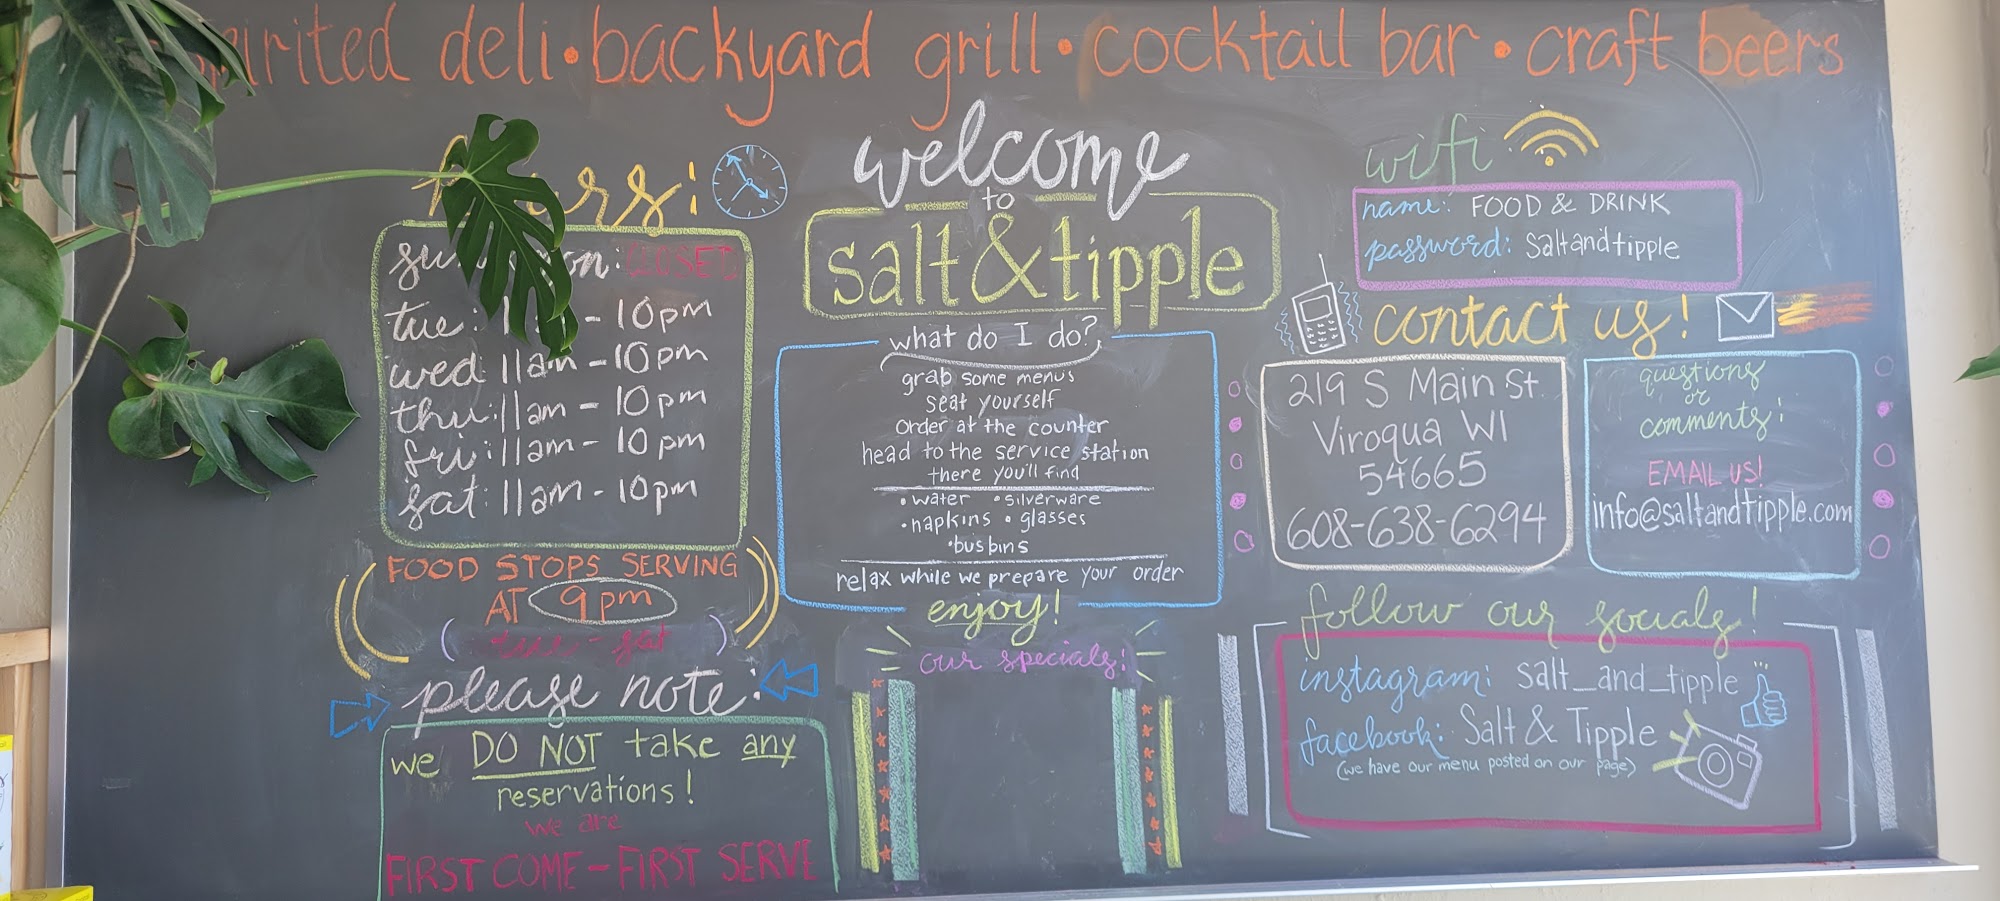 deli • backyard grill • cocktail bar • craft beers
welcome
to
salt & tipple
CLOSED
tue: - 10pm
wed 11am - 10pm
thu: 11am - 10pm
fri: 11am - 10pm
sat: 11am - 10pm
FOOD STOPS SERVING
AT 9pm
(tue - sat)
please note:
we DO NOT take any
reservations!
we are
FIRST COME - FIRST SERVE
what do I do?
grab some menus
seat yourself
order at the counter
head to the service station
there you'll find
• water • silverware
• napkins • glasses
• bus bins
relax while we prepare your order
enjoy!
our specials:
wifi
name: FOOD & DRINK
password: Saltandtipple
contact us!
219 S Main St.
Viroqua WI
54665
608-638-6294
questions
or
comments:
EMAIL US!
info@saltandtipple.com
follow our socials!
instagram: salt_and_tipple
facebook: Salt & Tipple
(we have our menu posted on our page)